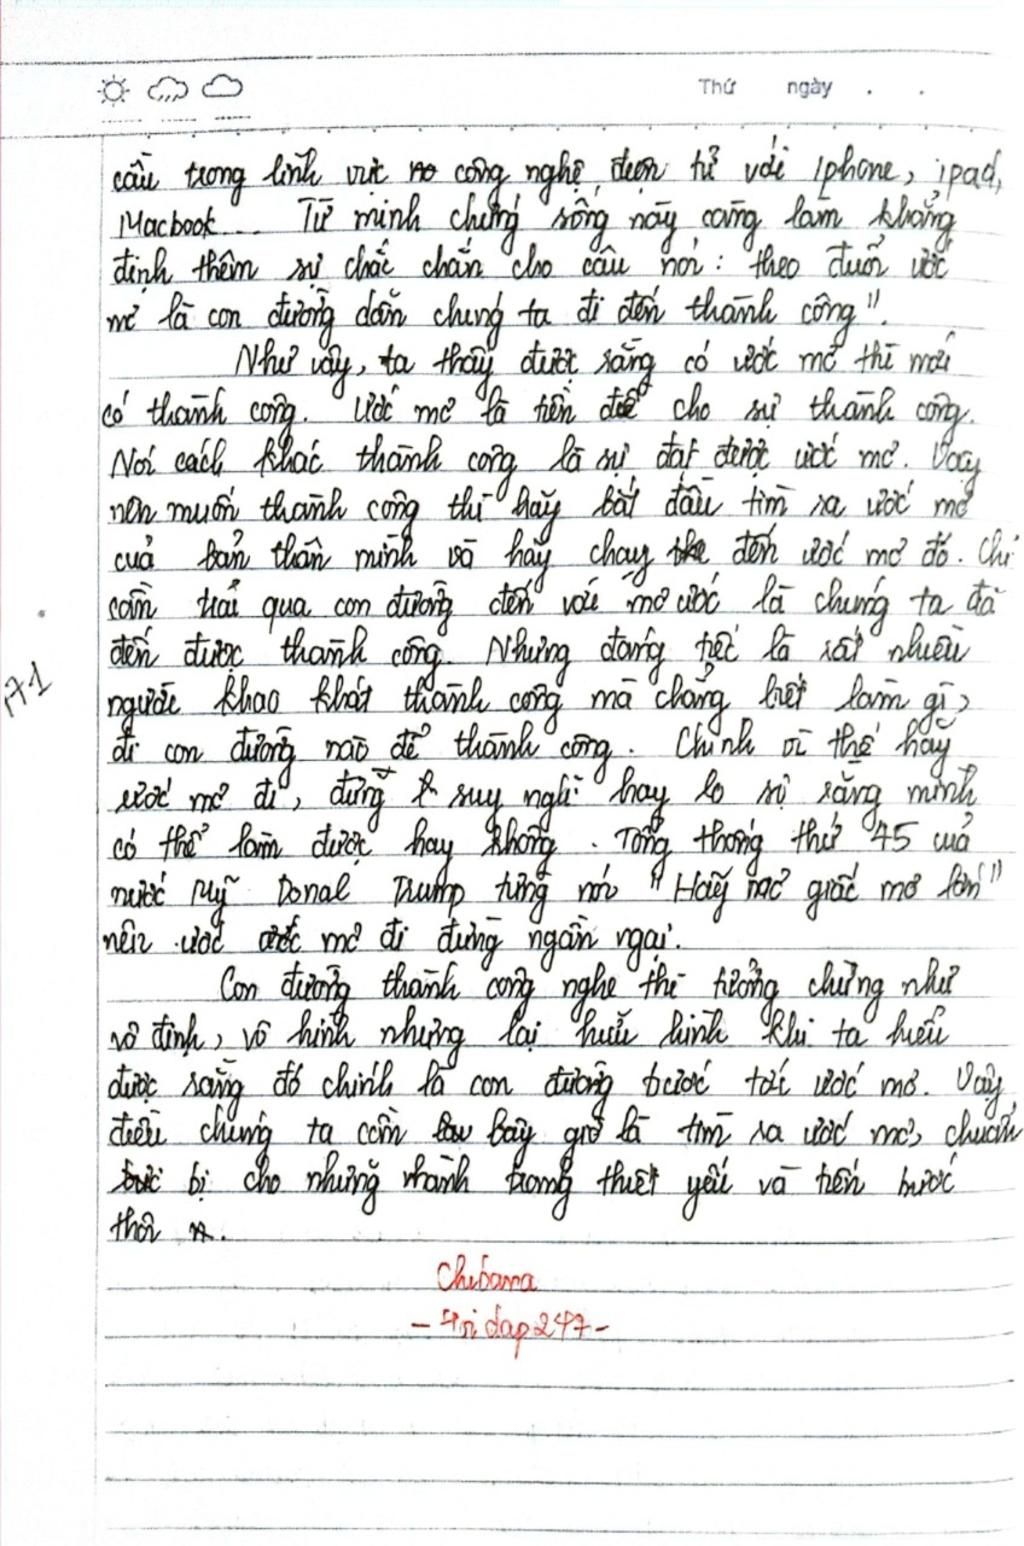 Thứ ngày . .
cầu trong lĩnh vực công nghệ điện tử với Iphone, ipad,
Macbook... Từ minh chứng sống này càng làm khẳng
định thêm sự chắc chắn cho câu nói: theo đuổi ước
mơ là con đường dẫn chúng ta đi đến thành công".
Như vậy, ta thấy được rằng có ước mơ thì mới
có thành công. Ước mơ là tiền đề cho sự thành công.
Nói cách khác thành công là sự đạt được ước mơ. Vậy
nên muốn thành công thì hãy bắt đầu tìm ra ước mơ
của bản thân mình và hãy chạy đến ước mơ đó. Chỉ
cần trải qua con đường đến với mơ ước là chúng ta đã
đến được thành công. Nhưng đáng tiếc là rất nhiều
người khao khát thành công mà chẳng biết làm gì,
đi con đường nào để thành công. Chính vì thế hãy
ước mơ đi, đừng suy nghĩ hay lo sợ rằng mình
có thể làm được hay không. Tổng thống thứ 45 của
nước Mỹ Donal Trump từng nói "Hãy mơ giấc mơ lớn"
nên ước mơ đi đừng ngần ngại.
Con đường thành công nghe thì tưởng chừng như
vô định, vô hình nhưng lại hữu hình khi ta hiểu
được rằng đó chính là con đường bước tới ước mơ. Vậy
điều chúng ta cần bây giờ là tìm ra ước mơ, chuẩn
bị cho những hành trang thiết yếu và tiến bước
thôi.
Chibana
- Tri dap 247 -